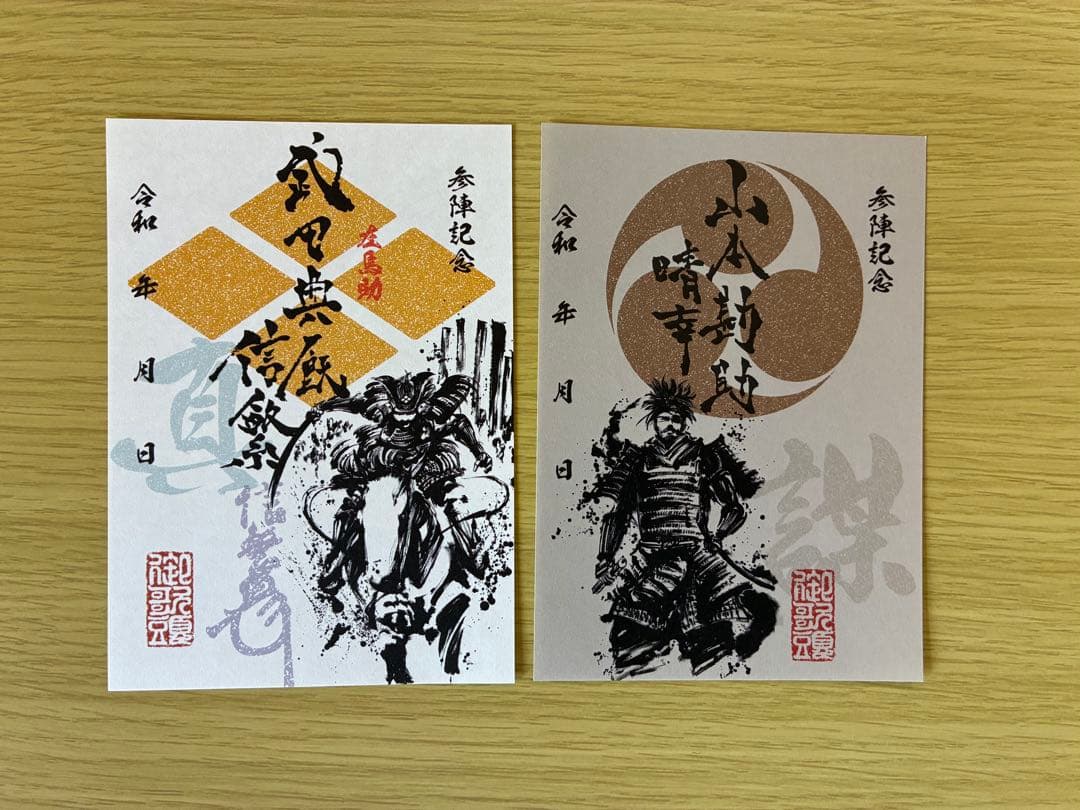 参陣記念
武田典厩
信繁
左馬助
令和 年 月 日
真
御歌頭
参陣記念
山本勘助
晴幸
令和 年 月 日
謀
御歌頭